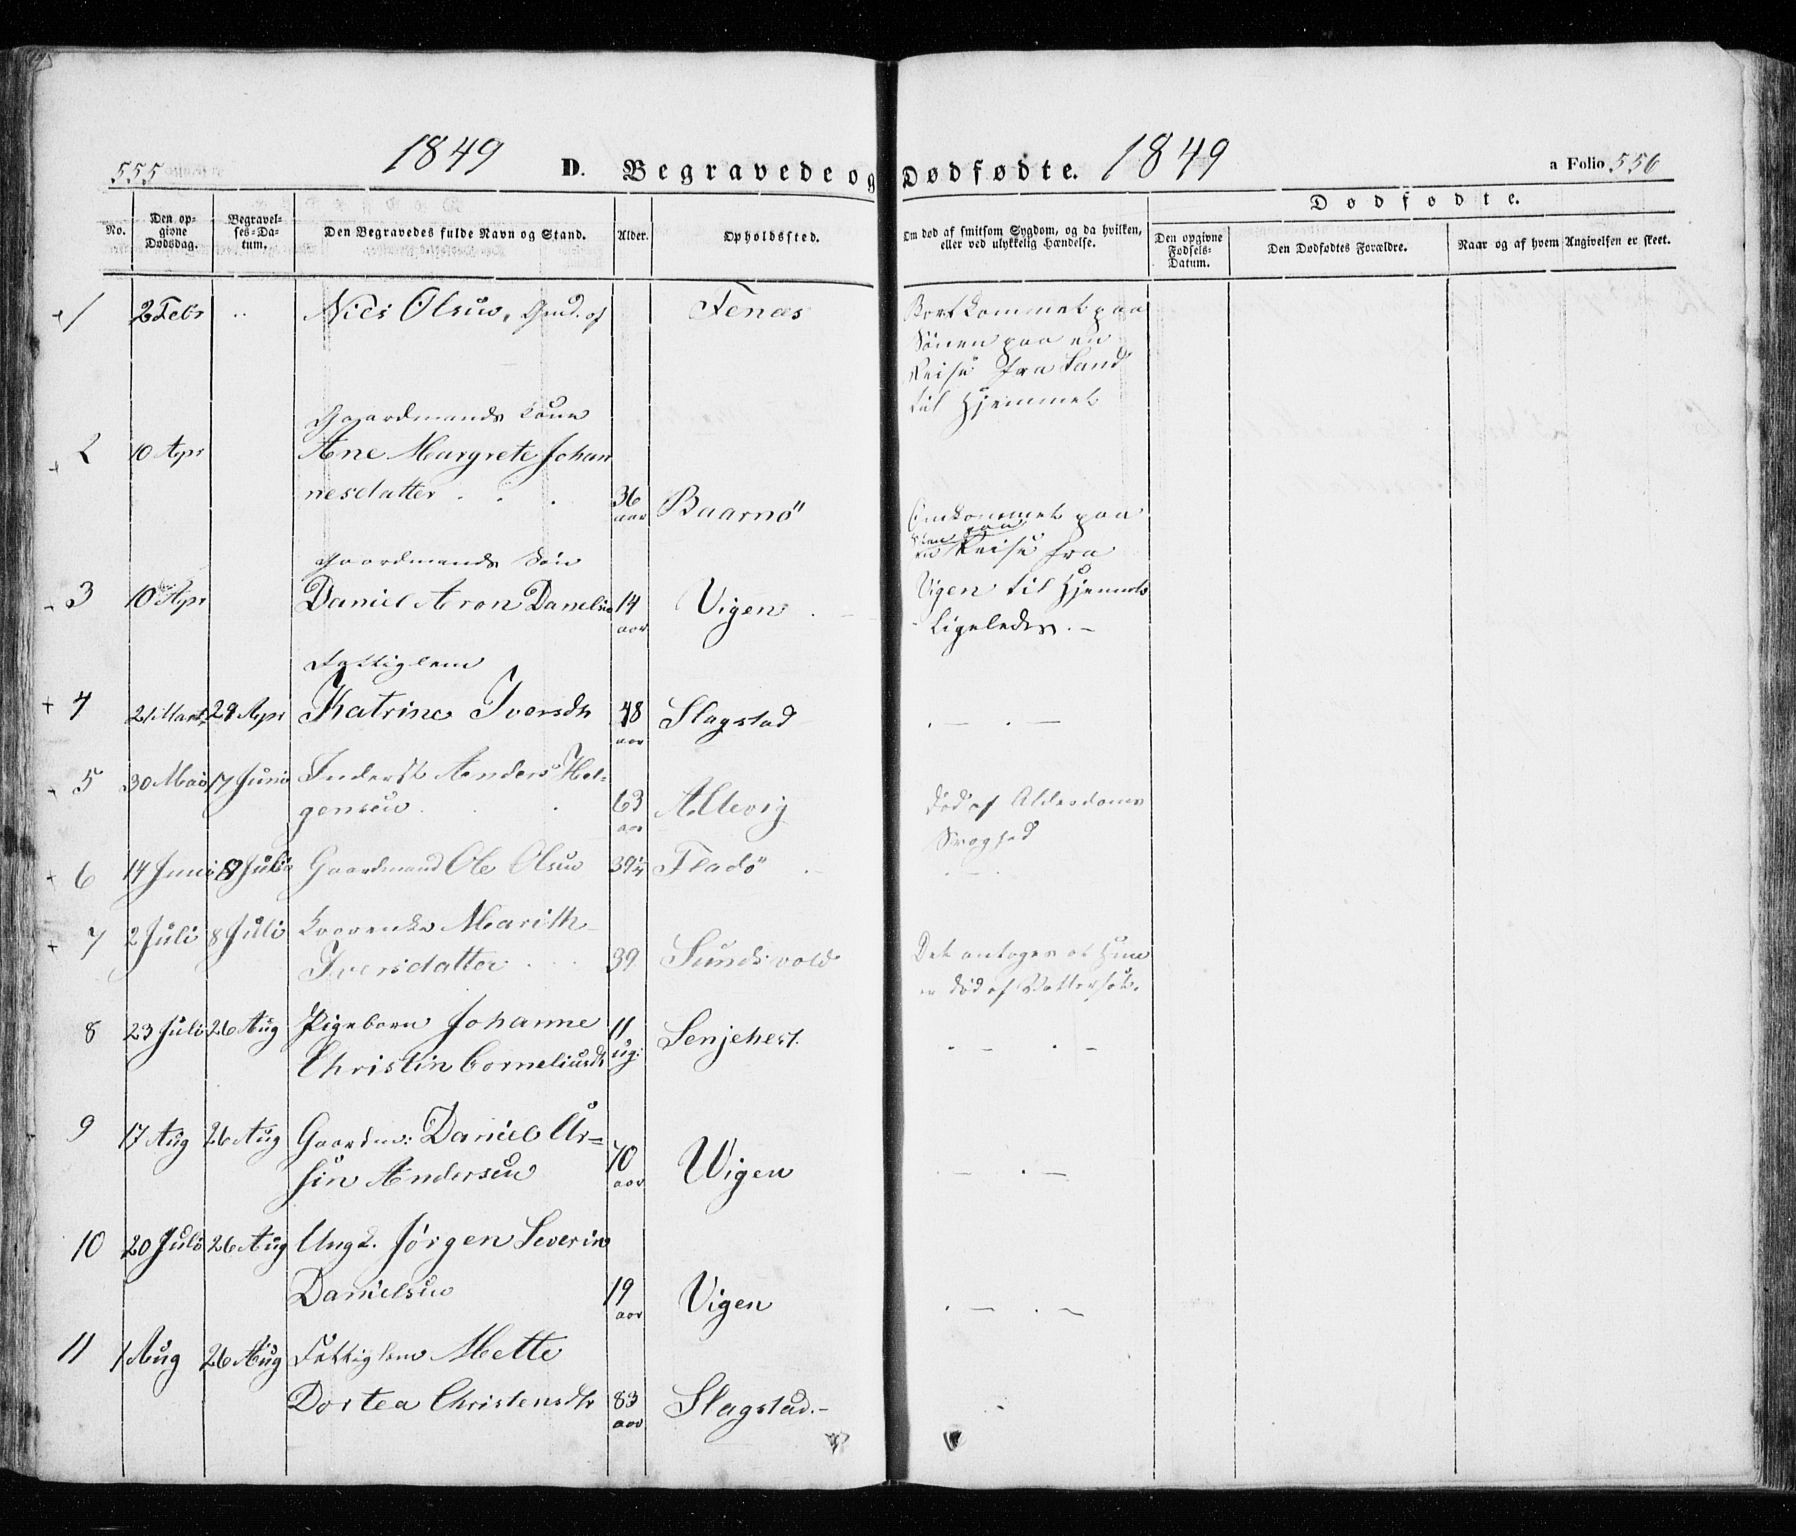 555 1849 D. Begravede og Dødfødte. 1849 a Folio 556
No. Den opgivne Dødsdag. Begravelses-Datum. Den Begravedes fulde Navn og Stand. Alder. Opholdssted. Om død af smitsom Sygdom, og da hvilken, eller ved ulykkelig Hændelse.
Dødfødte.
Den opgivne Fødsels-Datum. Den Dødfødtes Forældre. Naar og af hvem Angivelsen er skeet.
1 2 Febr Niels Olsen, Gmd. af Fenæs Bortkommet paa
Søen paa en
Reise fra Land
til Hjemmet
Gaardmands Kone
2 10 Apr Ane Margrete Johan
nesdatter 36 aar Baarnö Omkommet paa
Søen paa
en Reise fra
Vigen til Hjemmet
Gaardmands Søn
3 10 Apr Daniel Aron Danielsen 14 aar Vigen Ligeledes. -
Fattiglem
4 21 Marts 29 Apr Katrine Iversdtr 48 aar Slagstad
5 30 Mai 17 Juni Inderst Anders Hel-
gensen 63 aar Altevig Død af Alderdoms
Svaghed
6 14 Juni 8 Juli Gaardmand Ole Olsen 39 Fladö
7 2 Juli 8 Juli Marith
Iversdatter 39 Sundsvold Det antages at hun
er død af Vattersot.
8 23 Juli 26 Aug Pigebarn Johanne
Christin Corneliusdtr 11 ug: Senjehest.
9 17 Aug 26 Aug Gaardm: Daniel Ur-
sin Andersen 70 aar Wigen
10 20 Juli 26 Aug Ungk. Jörgen Severin
Danielsen 19 aar Vigen
11 1 Aug 26 Aug Fattiglem Mette
Dortea Christensdtr 83 aar Slagstad. -